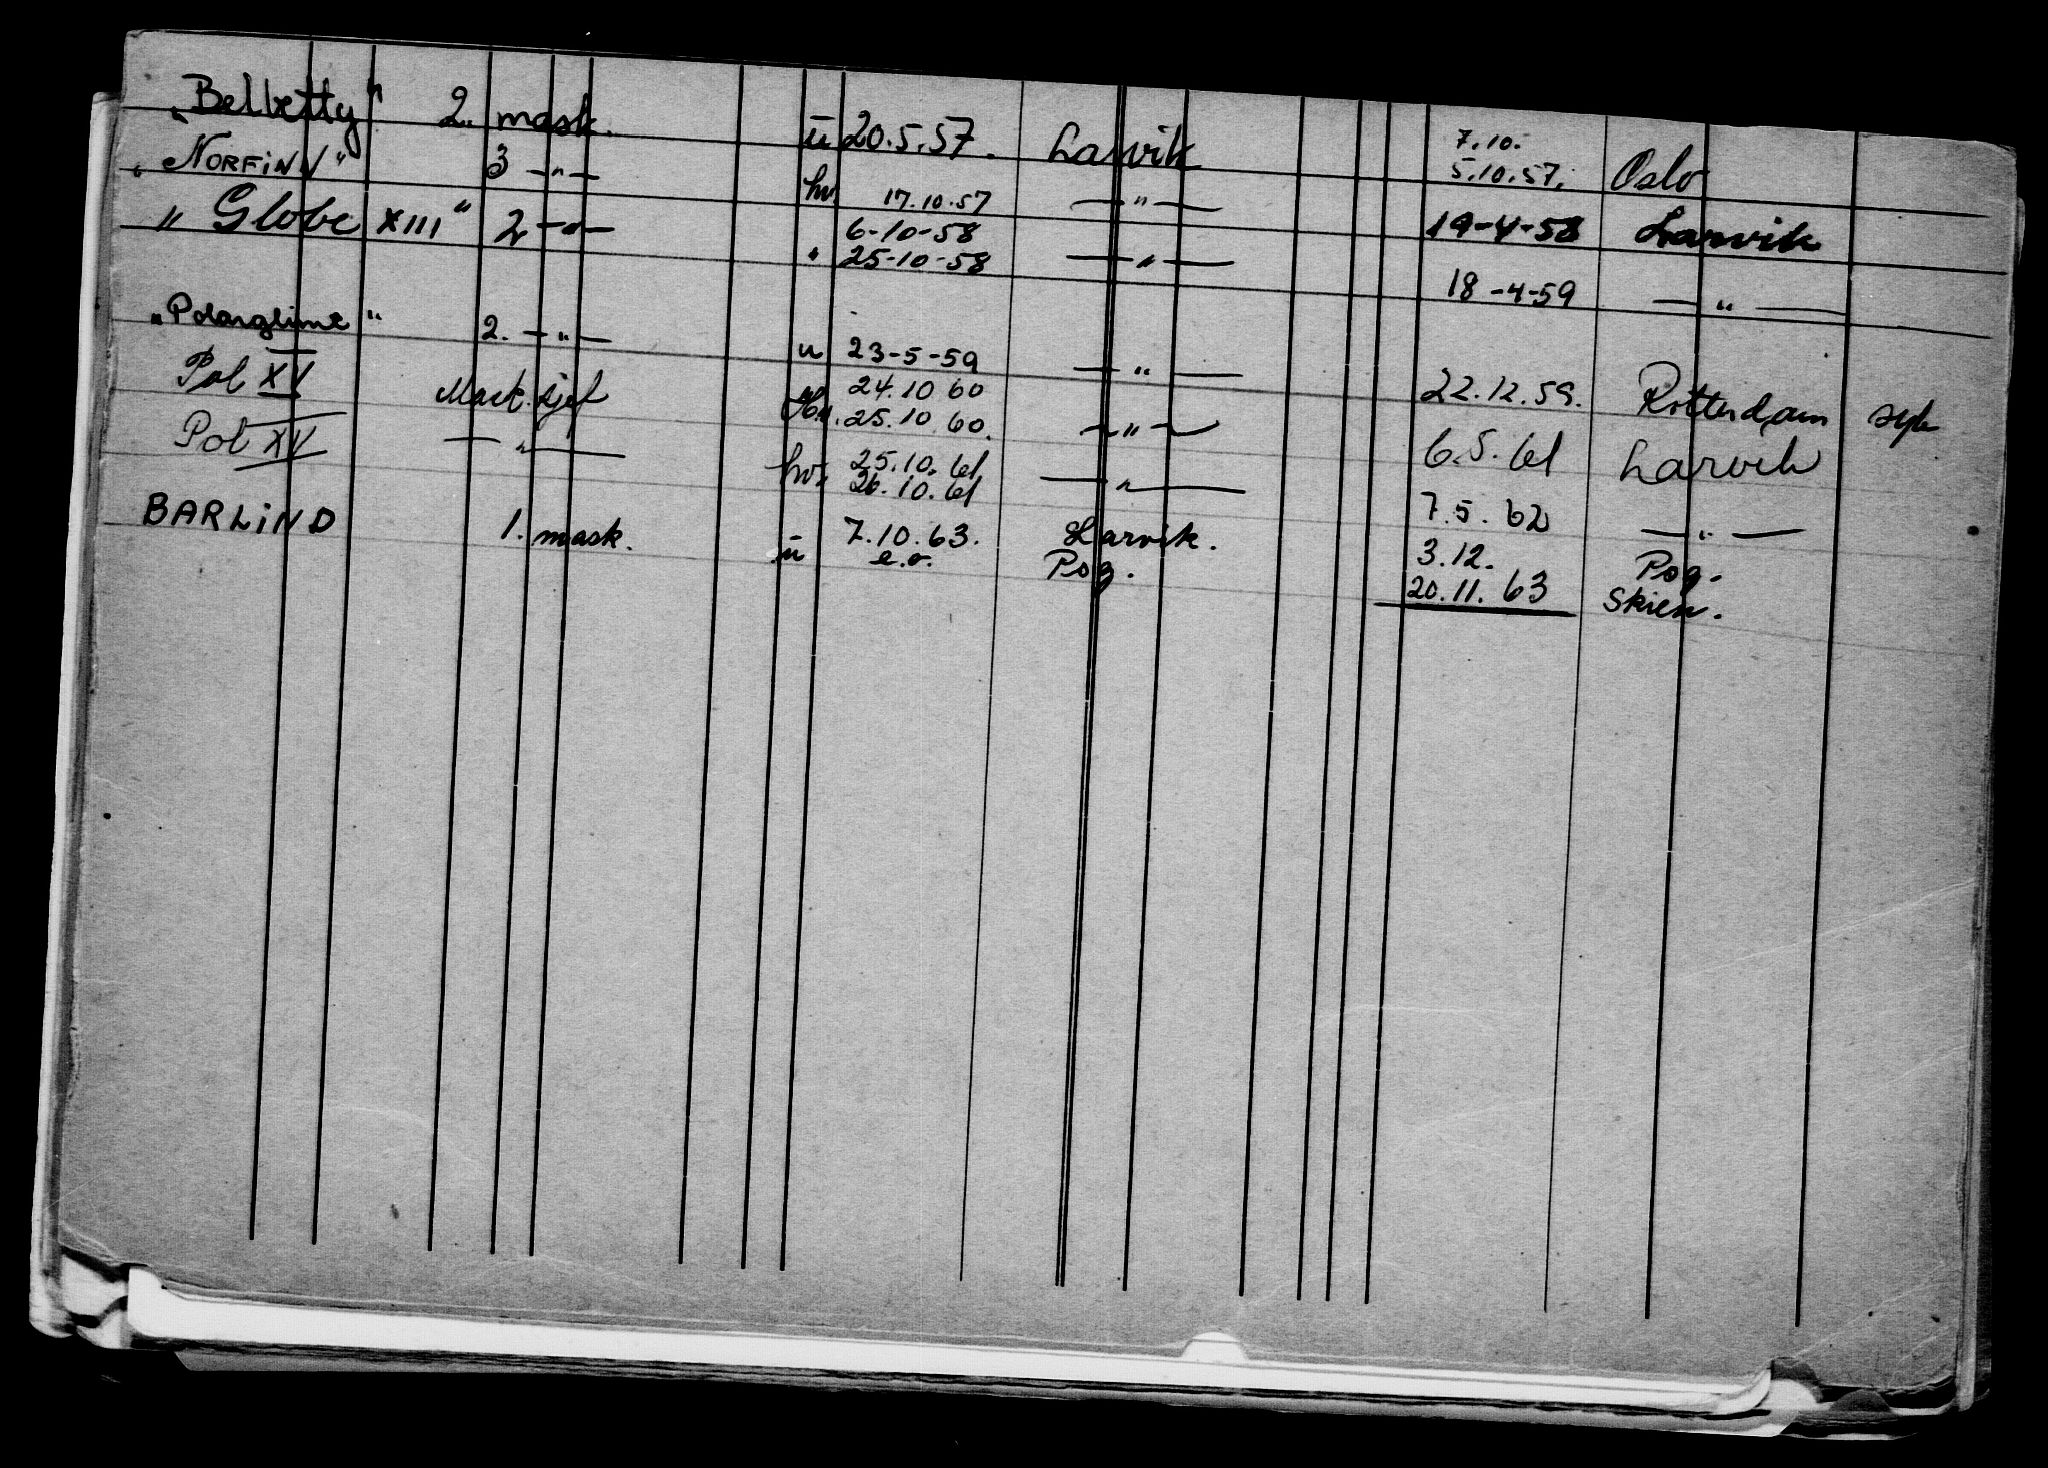 „Belbetty" 2. mask. ü 20.5.57. Larvik 7.10. 5.10.57. Oslo
„NORFINN" 3 —"— hv. 17.10.57 —"— 19-4-58 Larvik
„Globe XIII" 2 —"— " 6-10-58 25-10-58 —"— 18-4-59 —"—
„Polarglimt" 2. —"— u 23-5-59 —"— 22.12.59. Rotterdam syk
Pol XV Mask.sjef Hv. 24.10 60 25.10.60. —"— 6.5.61 Larvik
Pol XV —"— hv. 25.10.61 26.10.61 —"— 7.5.62 —"—
BARLIND 1. mask. ü 7.10.63. Larvik. 3.12. Pog.
e.o. Pog. 20.11.63 Skien.